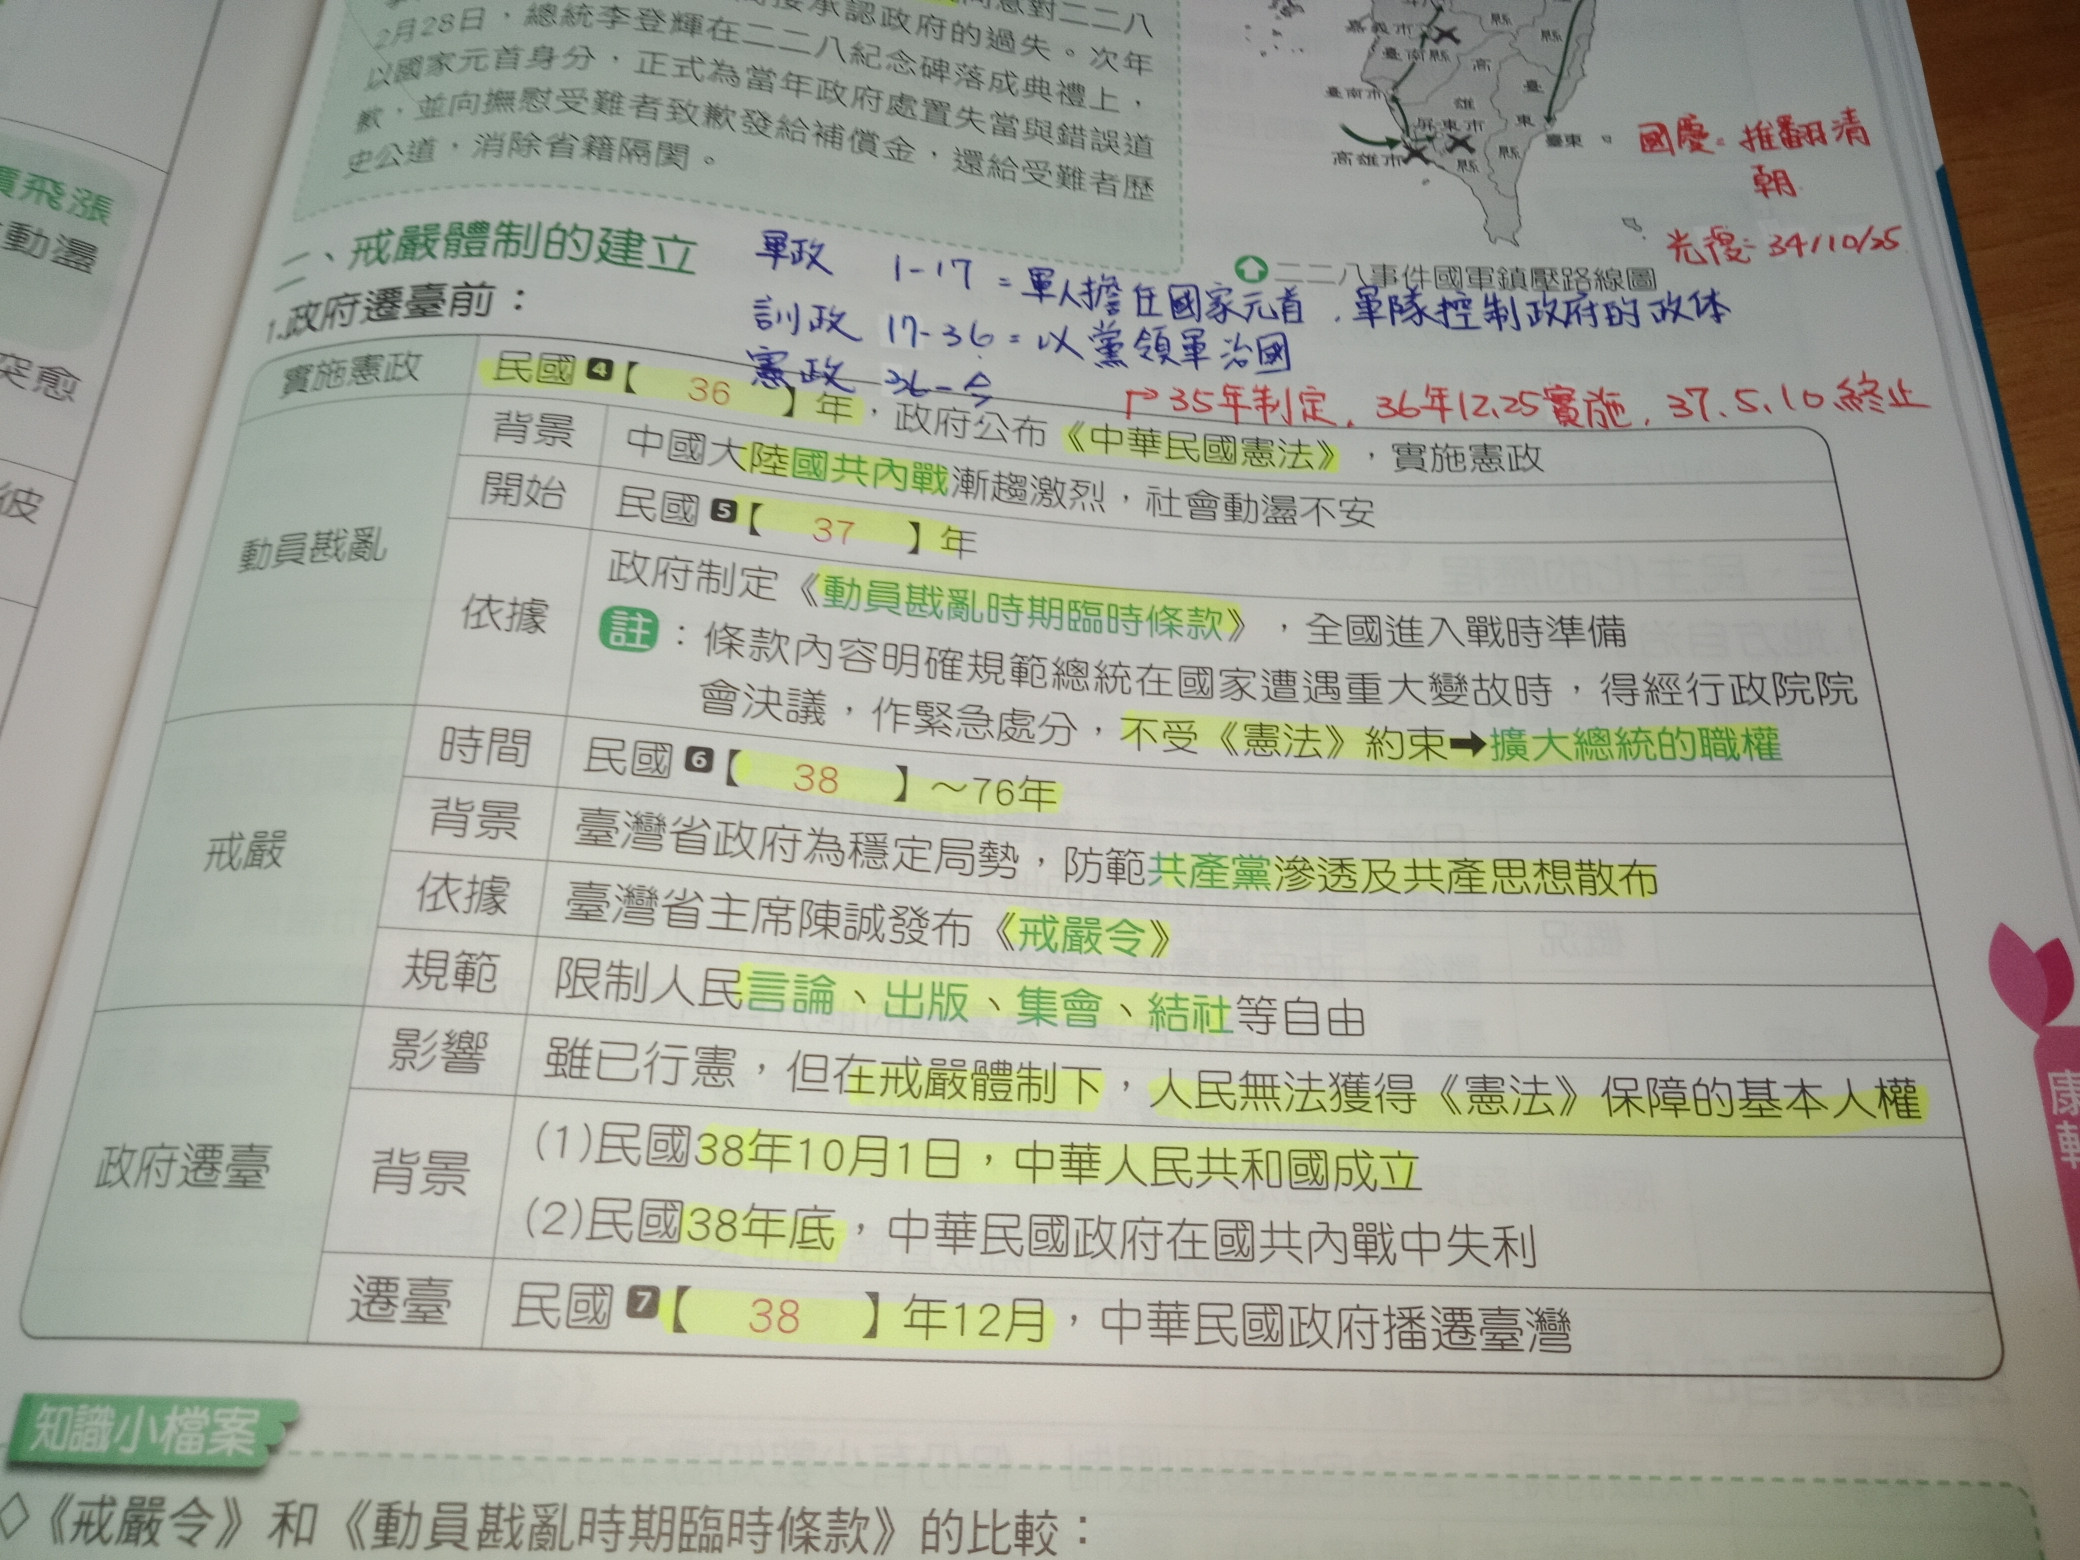 同意對二二八
間接承認政府的過失。次年
2月28日，總統李登輝在二二八紀念碑落成典禮上，
以國家元首身分，正式為當年政府處置失當與錯誤道
歉，並向撫慰受難者致歉發給補償金，還給受難者歷
史公道，消除省籍隔閡。
嘉義市
臺南縣
臺南市
高
雄
縣
屏東市
縣
高雄市
臺
東
縣
臺東
縣
縣
二二八事件國軍鎮壓路線圖
國慶：推翻清
朝
光復：34/10/25
飛漲
動盪
突愈
彼
二、戒嚴體制的建立
軍政 1-17 = 軍人擔任國家元首，軍隊控制政府的政体
訓政 17-36 = 以黨領軍治國
憲政 36-今
1.政府遷臺前：
35年制定，36年12.25實施，37.5.10終止
實施憲政 民國4【 36 】年，政府公布《中華民國憲法》，實施憲政
動員戡亂
背景 中國大陸國共內戰漸趨激烈，社會動盪不安
開始 民國5【 37 】年
依據 政府制定《動員戡亂時期臨時條款》，全國進入戰時準備
註：條款內容明確規範總統在國家遭遇重大變故時，得經行政院院
會決議，作緊急處分，不受《憲法》約束➡擴大總統的職權
戒嚴
時間 民國6【 38 】～76年
背景 臺灣省政府為穩定局勢，防範共產黨滲透及共產思想散布
依據 臺灣省主席陳誠發布《戒嚴令》
規範 限制人民言論、出版、集會、結社等自由
影響 雖已行憲，但在戒嚴體制下，人民無法獲得《憲法》保障的基本人權
政府遷臺
背景 (1)民國38年10月1日，中華人民共和國成立
(2)民國38年底，中華民國政府在國共內戰中失利
遷臺 民國7【 38 】年12月，中華民國政府播遷臺灣
康軒
知識小檔案
◇《戒嚴令》和《動員戡亂時期臨時條款》的比較：